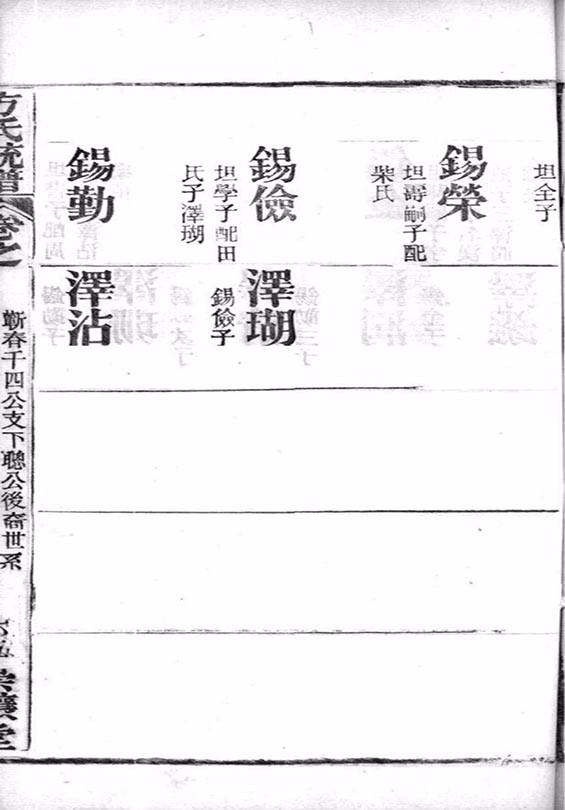 坦全子
錫榮
坦壽嗣子配
柴氏
錫儉
坦學子配田
氏子澤瑚
錫勤
澤瑚
錫儉子
澤沽
方氏統譜
卷之
蘄春千四公支下聰公後裔世系